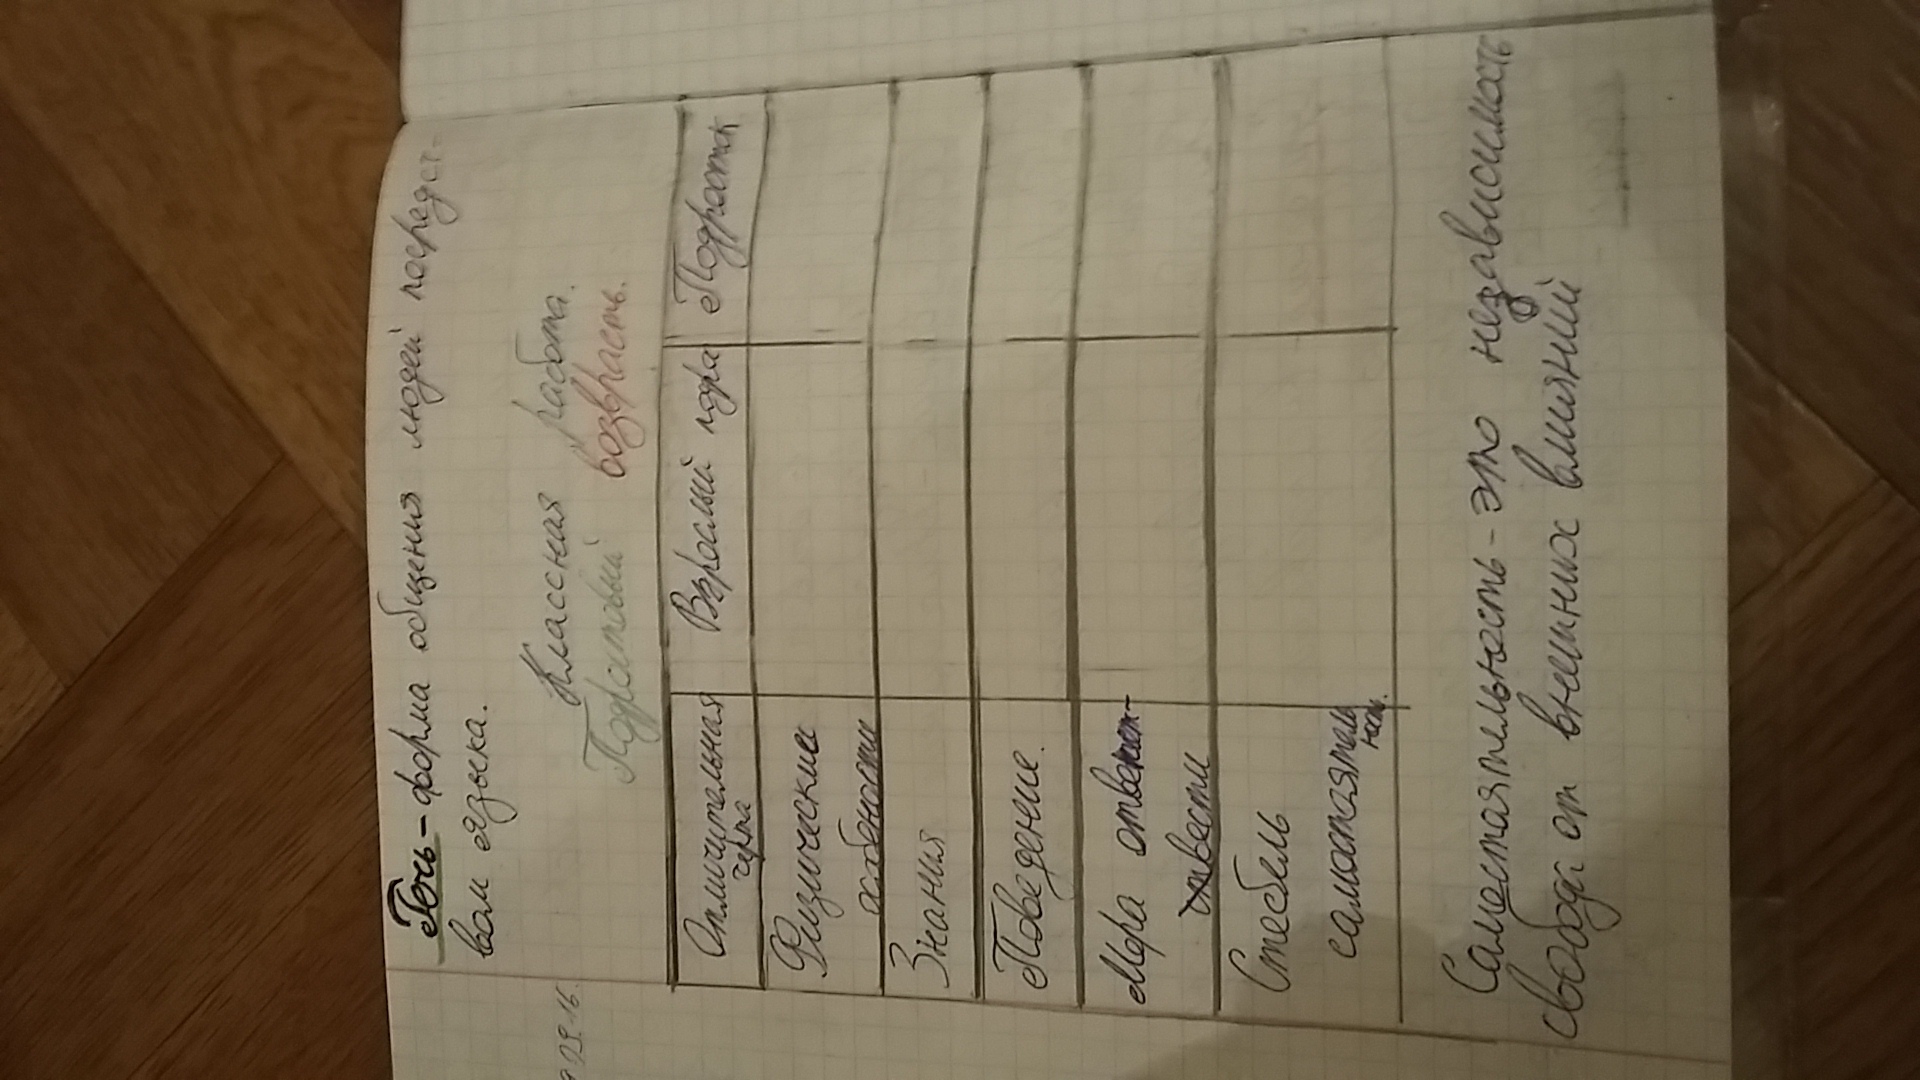 Речь - форма общения людей посредст-
вом языка.
09.16.
Классная работа.
Подростковый возвраст.
Отличительная черта
Взрослый
Подросток
Физические
особенности
Знания
Поведение.
Мера ответст-
твести
Стебель
самостоятель
ност.
Самостоятельность - это независимость
свобода от внешних влияний